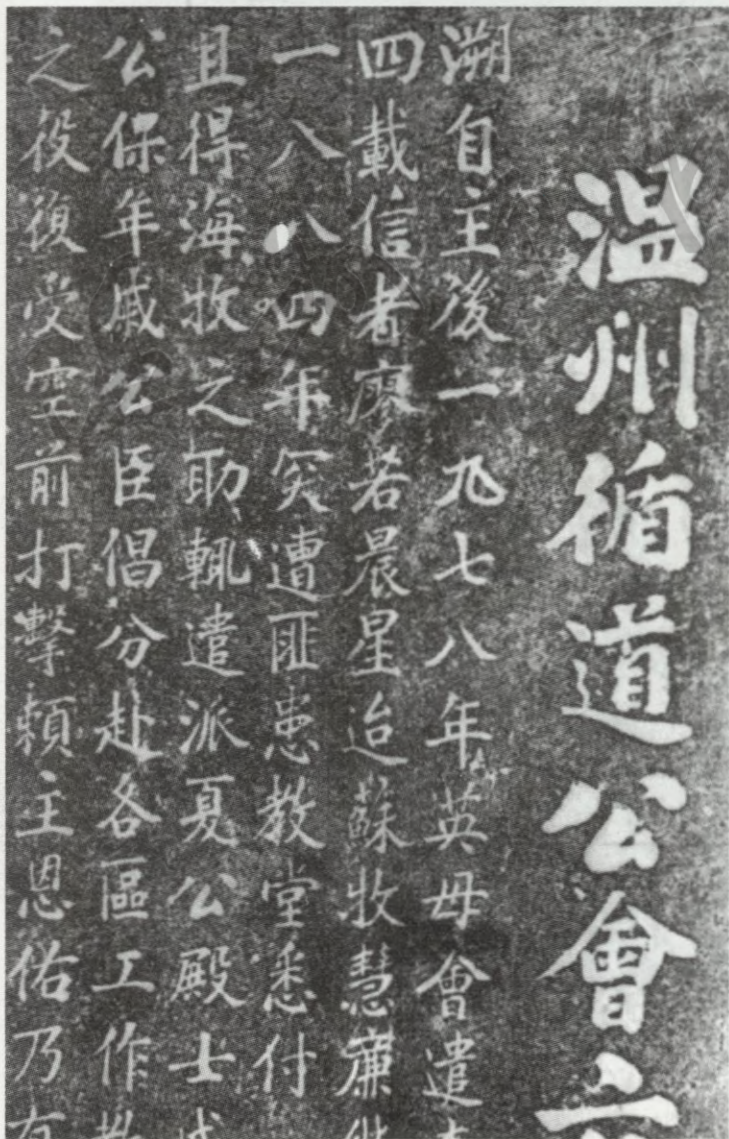 温州循道公會六
溯自主後一九七八年英母會遣
四載信者廖若晨星迨蘇牧慧廉
一八八四年突遭匪患教堂悉付
且得海牧之助輒遣派夏公殿士
公保年戚公臣倡分赴各區工作
之役復受空前打擊賴主恩佑乃有